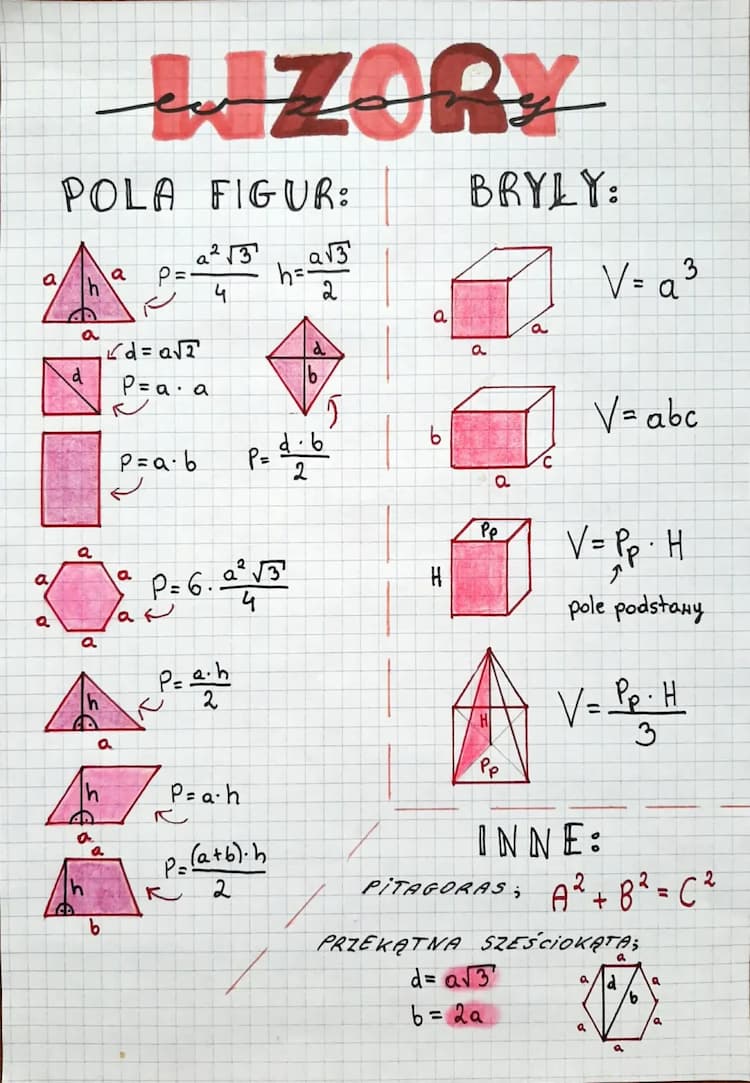 WZORY
wzory
POLA FIGUR:
a a h a
P = a²√3 / 4
h = a√3 / 2
d
d = a√2
P = a · a
d b
P = d · b / 2
P = a · b
a a a a a a
P = 6 · a²√3 / 4
h a
P = a · h / 2
h a
P = a · h
a h b
P = (a+b) · h / 2
BRYŁY:
a a a
V = a³
b a c
V = abc
Pp H
V = Pp · H
pole podstawy
H Pp
V = Pp · H / 3
INNE:
PITAGORAS; A² + B² = C²
PRZEKĄTNA SZEŚCIOKĄTA;
d = a√3
b = 2a
a a a a a a d b